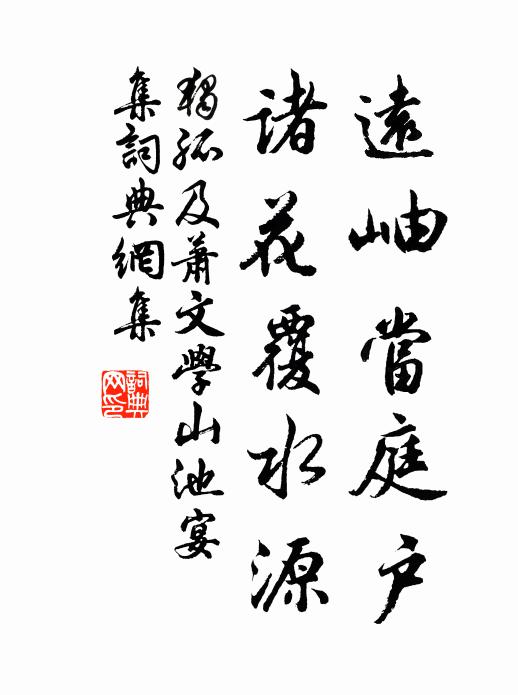 遠岫當庭戶
諸花覆水源
獨孤及蕭文學山池宴
集詞典網集
詞典网印